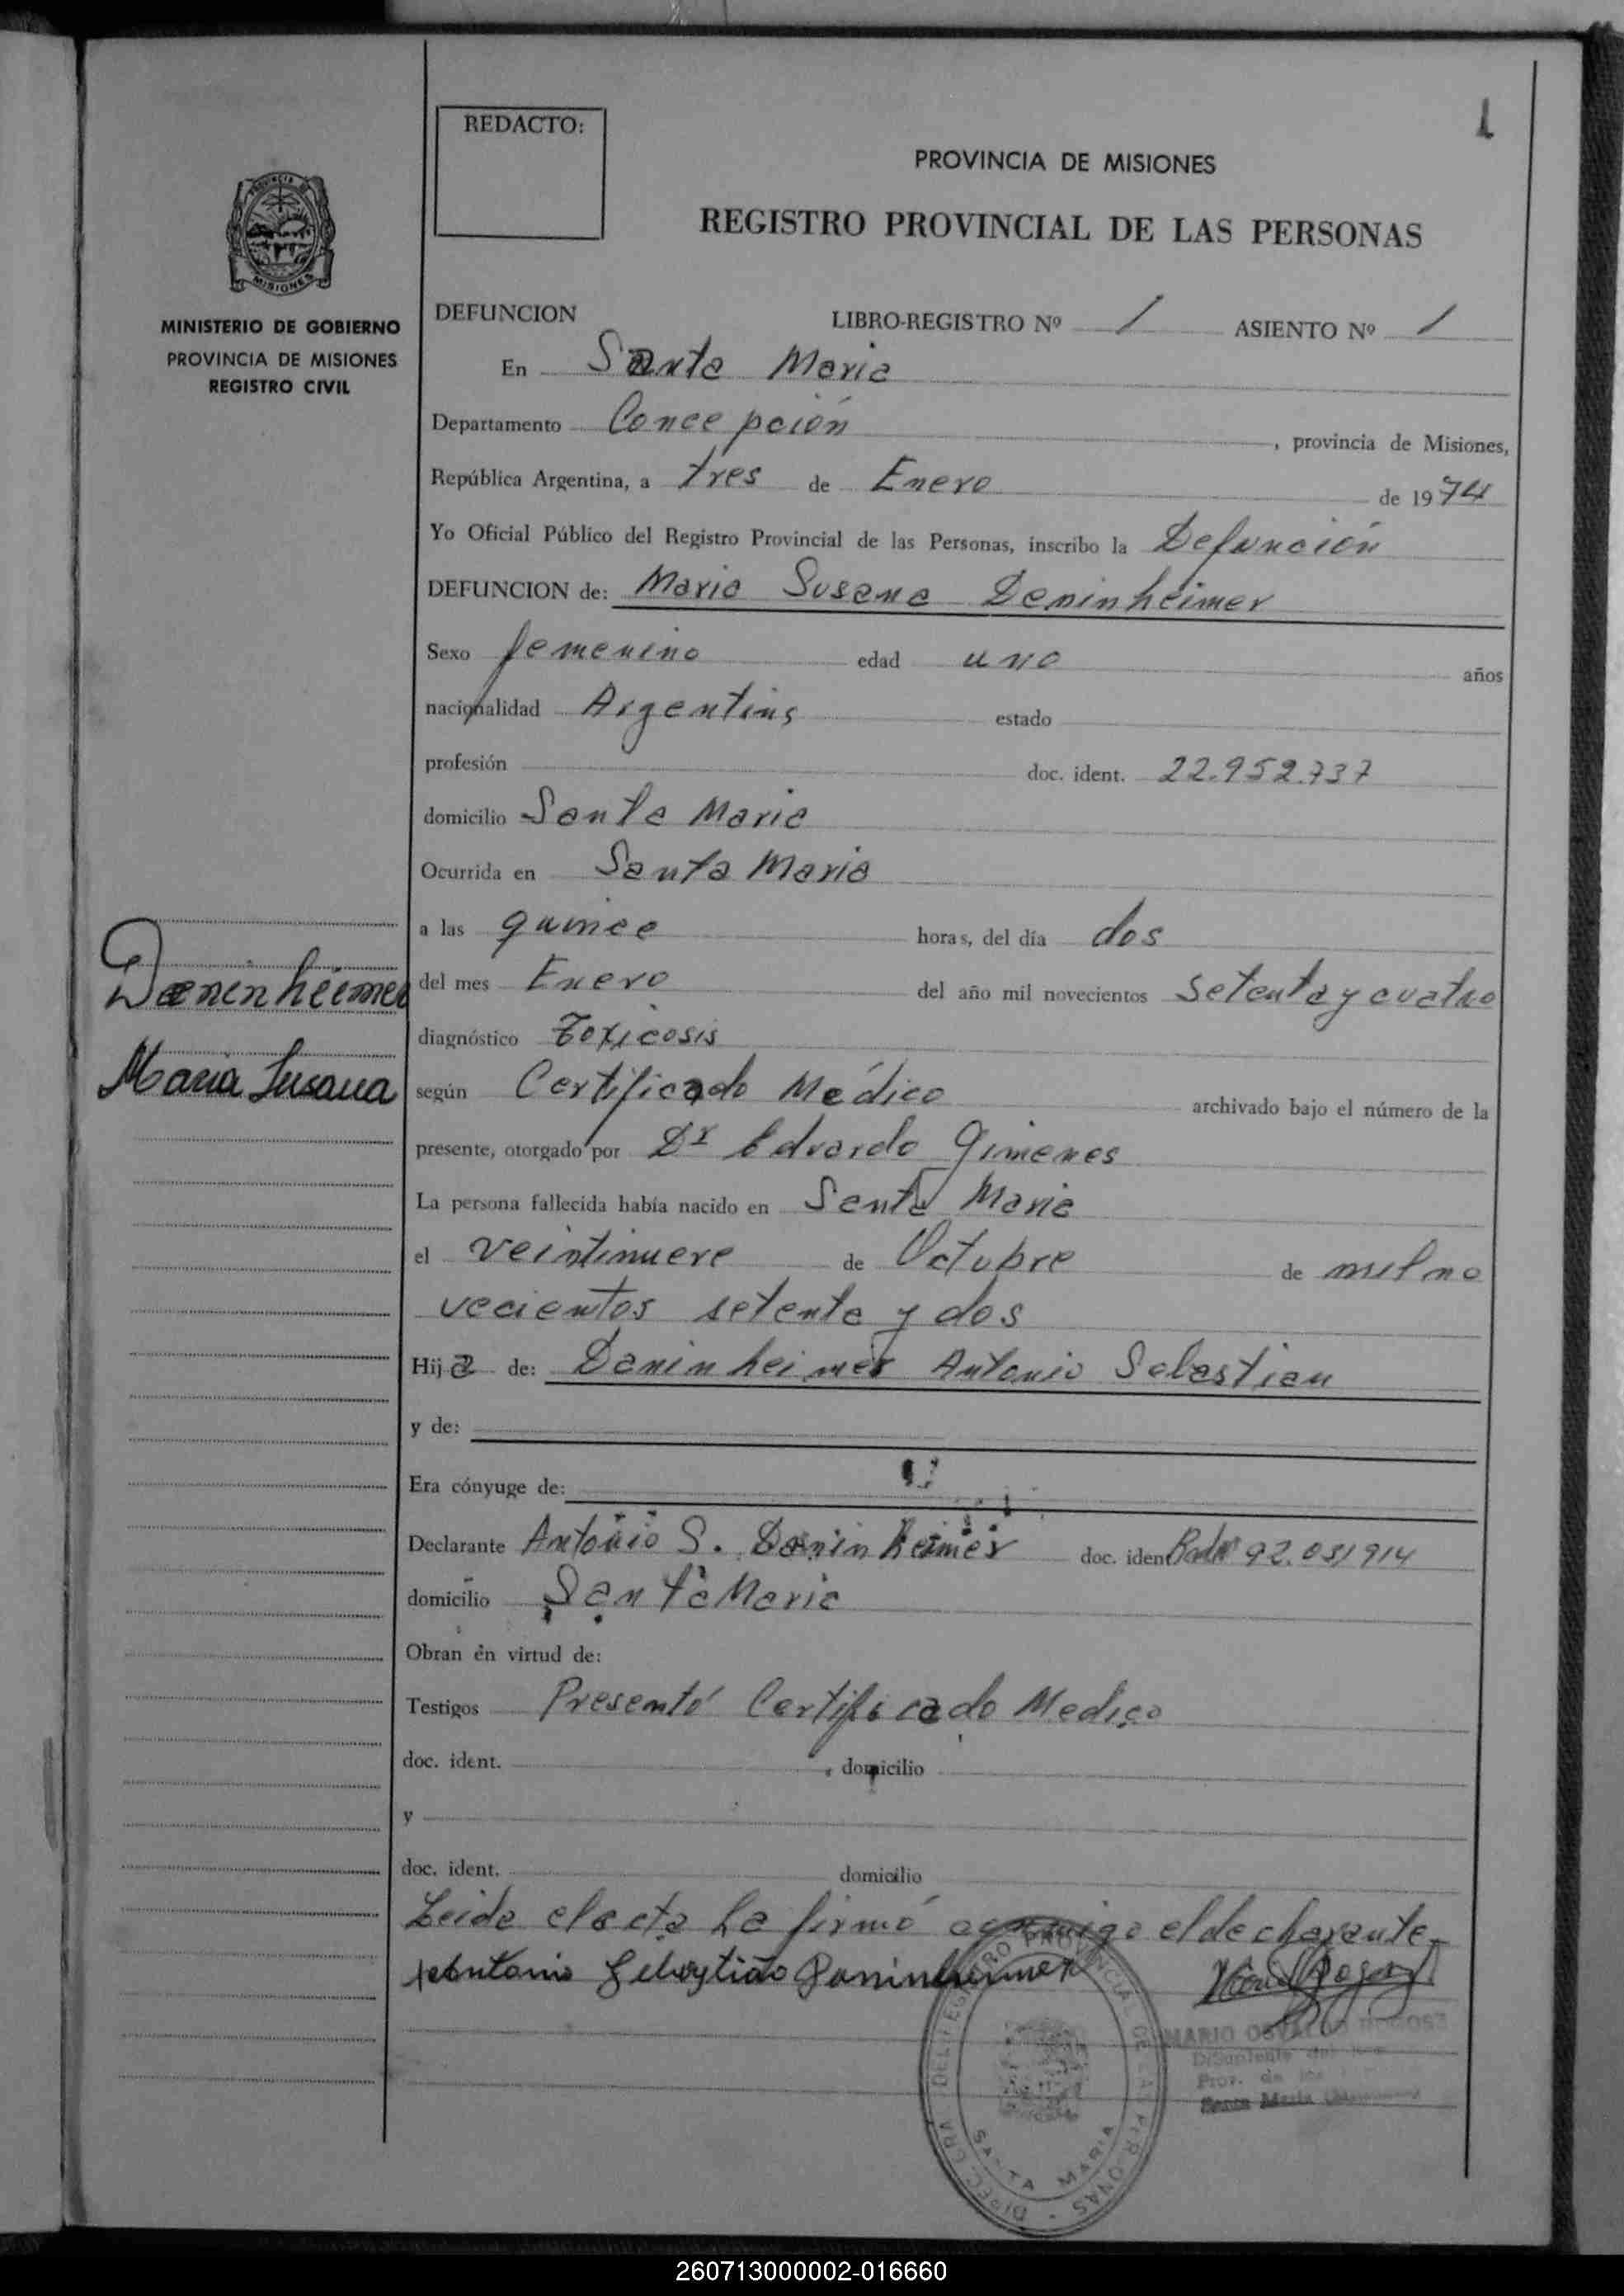 1
REDACTO:
PROVINCIA DE MISIONES
REGISTRO PROVINCIAL DE LAS PERSONAS
PROVINCIA DE
MISIONES
MINISTERIO DE GOBIERNO
PROVINCIA DE MISIONES
REGISTRO CIVIL
DEFUNCION LIBRO-REGISTRO Nº 1 ASIENTO Nº 1
En Santa Maria
Departamento Concepción, provincia de Misiones,
República Argentina, a tres de Enero de 1974
Yo Oficial Público del Registro Provincial de las Personas, inscribo la Defunción
DEFUNCION de: Maria Susana Daninheimer
Sexo femenino edad uno años
nacionalidad Argentina estado
profesión doc. ident. 22.952.737
domicilio Santa Maria
Ocurrida en Santa Maria
a las quince horas, del día dos
del mes Enero del año mil novecientos setenta y cuatro
diagnóstico Toxicosis
según Certificado Médico archivado bajo el número de la
presente, otorgado por Dr Eduardo Gimenes
La persona fallecida había nacido en Santa Maria
el veintinueve de Octubre de mil no
vecientos setenta y dos
Hija de: Daninheimer Antonio Sebastian
y de:
Era cónyuge de:
Declarante Antonio S. Daninheimer doc. ident 92.031914
domicilio Santa Maria
Obran en virtud de:
Testigos Presentó Certificado Medico
doc. ident. domicilio
y
doc. ident. domicilio
Leida el acta la firmó conmigo el declarante.
Antonio Sebastião Daninheimer
Daninheimer
Maria Susana
MARIO
Prov. de
Santa Maria
SANTA MARIA
260713000002-016660